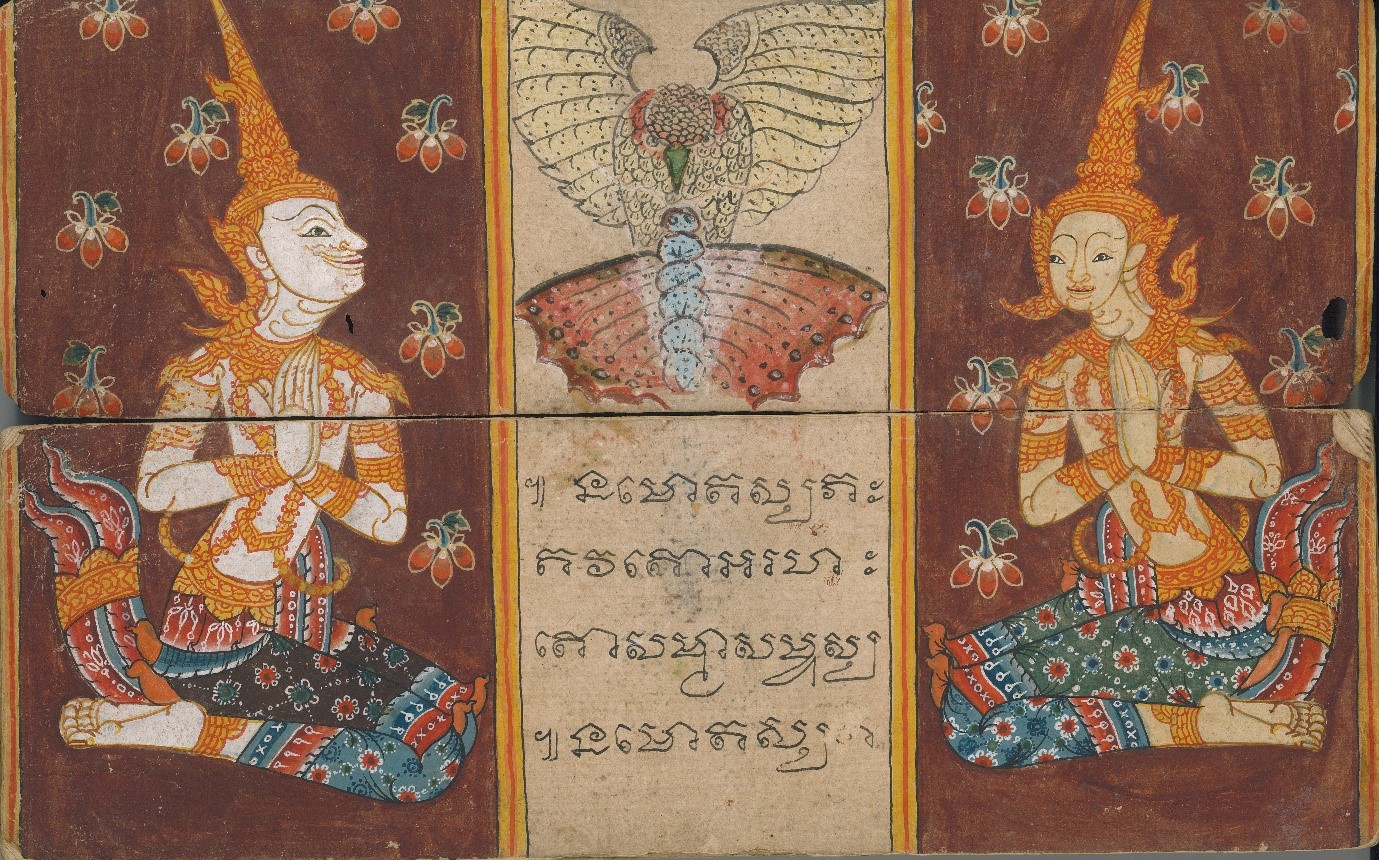 ៕ នមោតស្សភៈ
គវតោអរហៈ
តោសម្មាសម្ពុស្ស
៕ នមោតស្ស